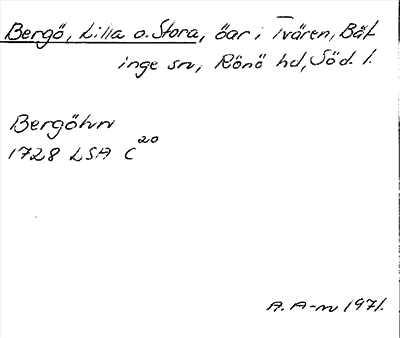 Bergö, Lilla o. Stora, öar i Tvären, Bät
inge sn, Rönö hd, Söd. l.
Bergöhvv
1728 LSA C20
A. A-n 1971.